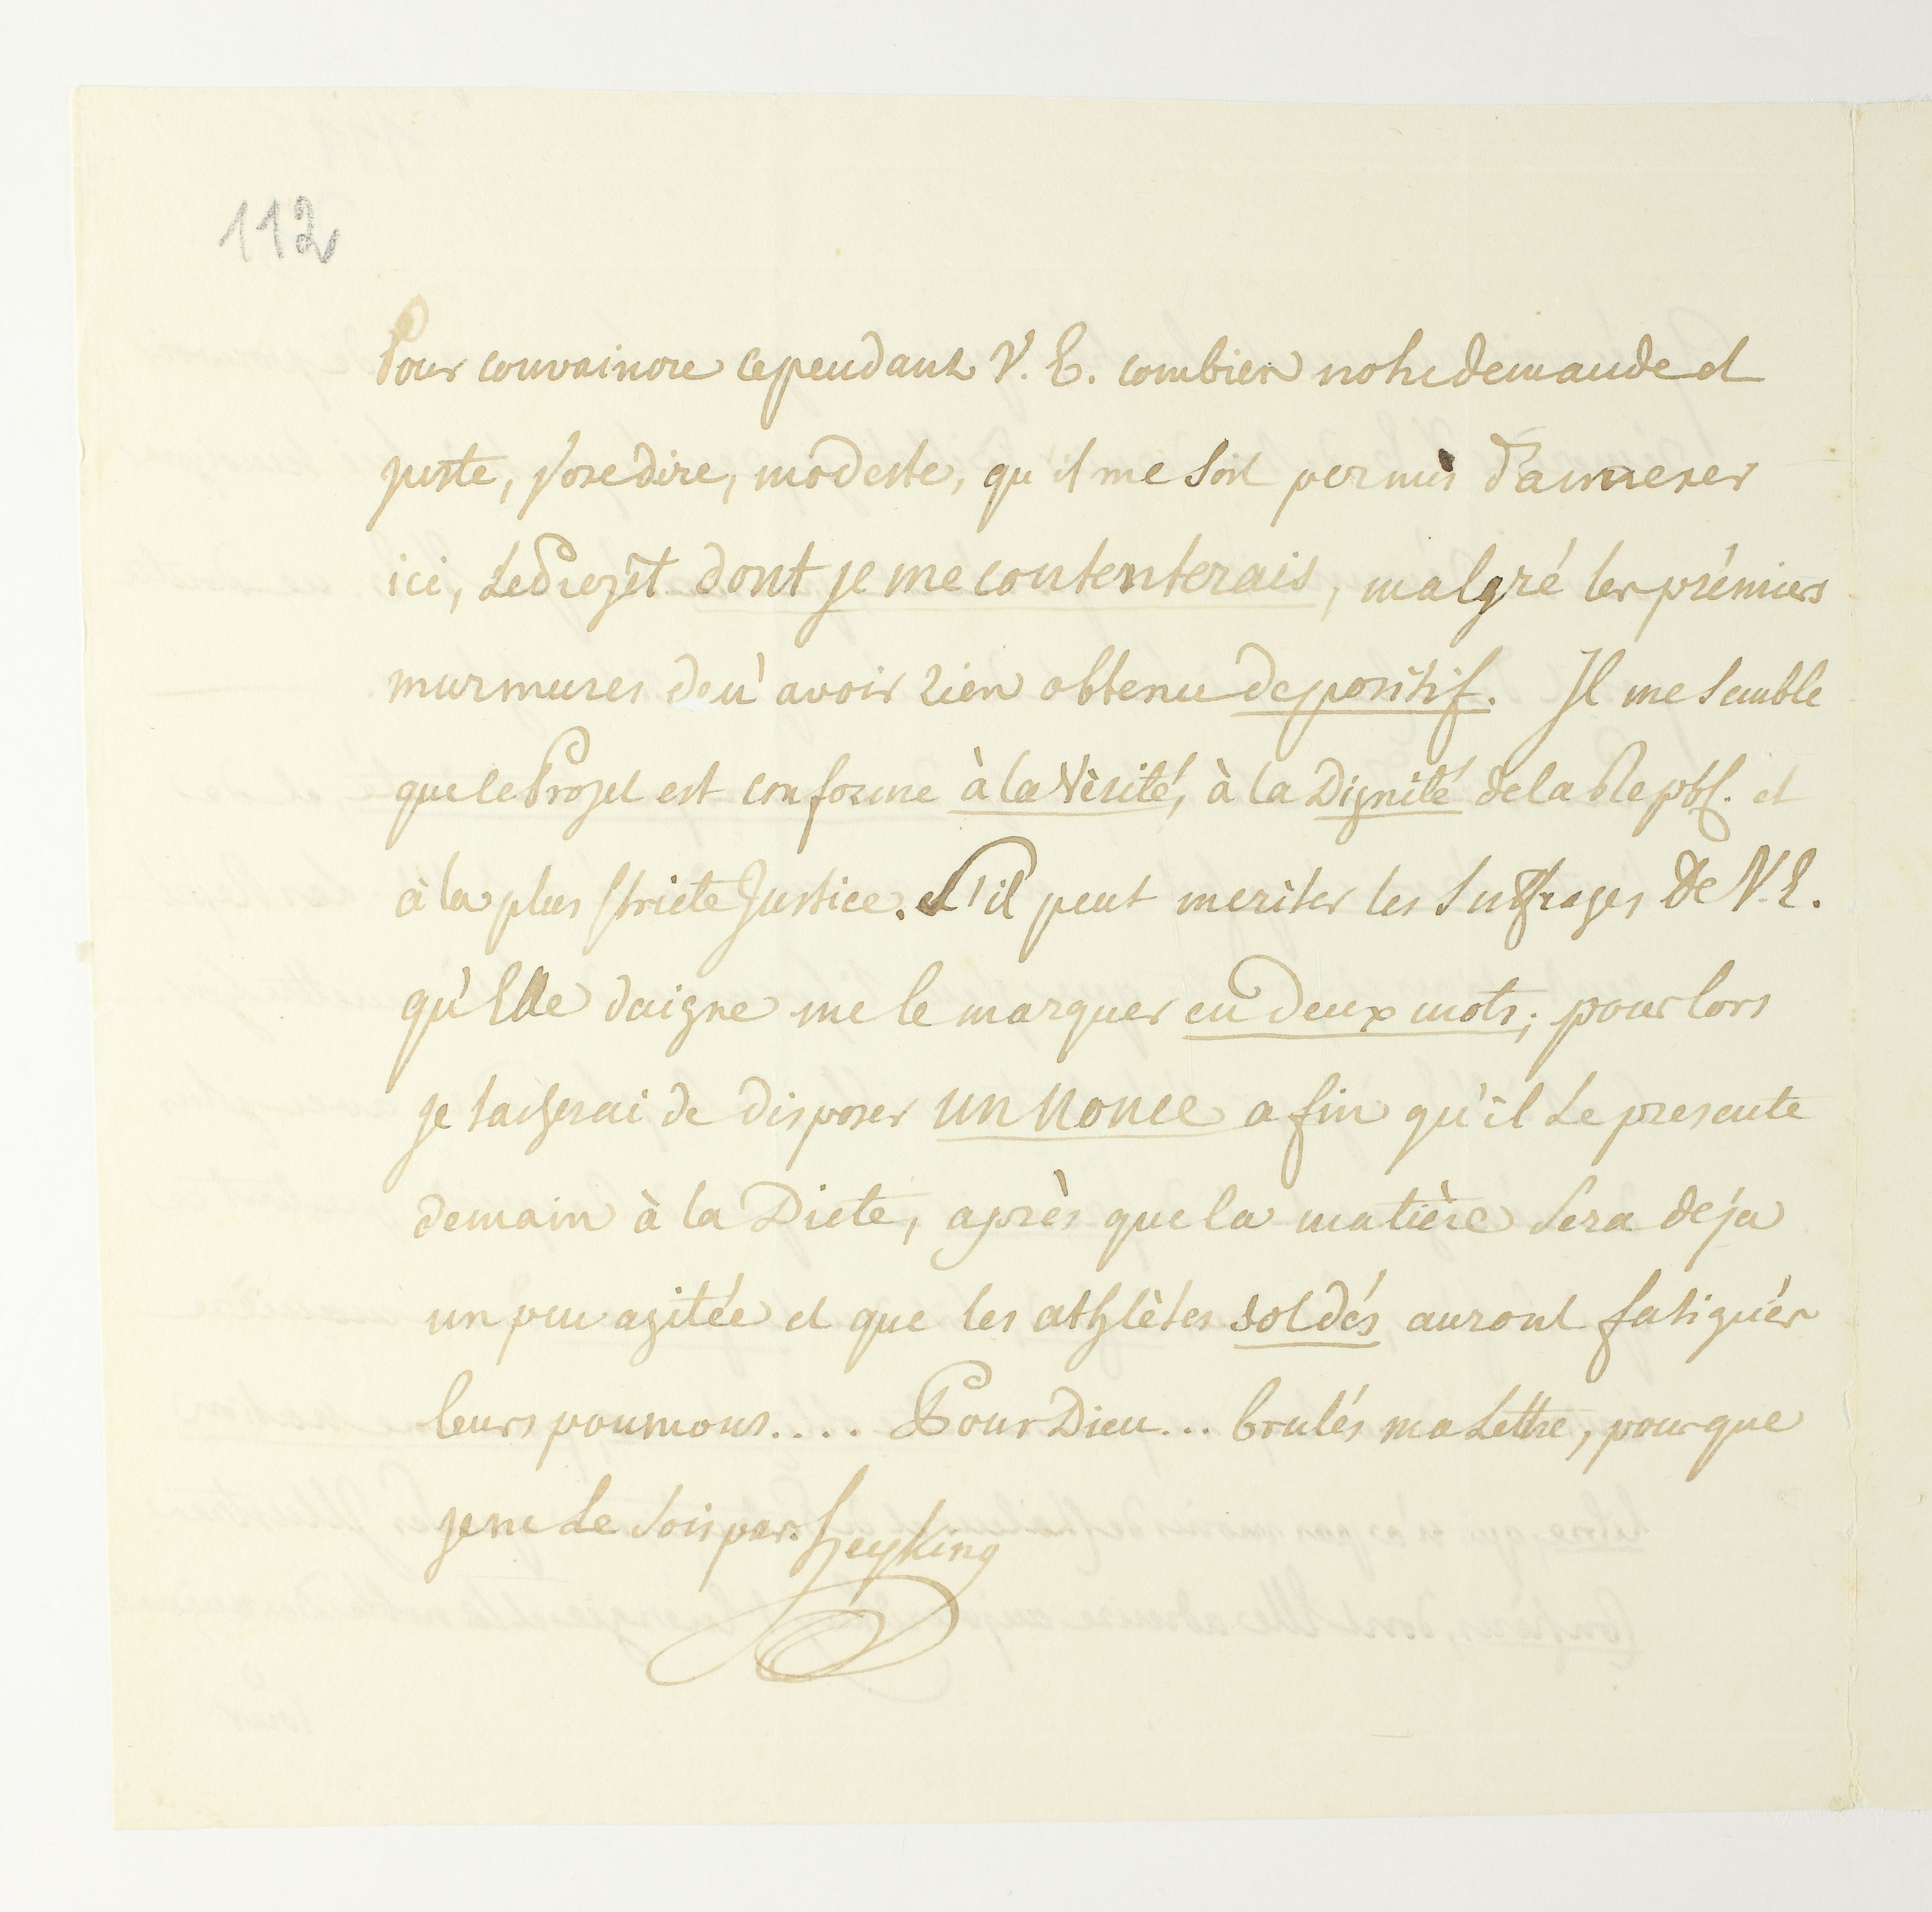 112
Pour convaincre cependant V. E. combien notre demande est
juste, j'ose dire, modeste, qu'il me soit permis d'annexer
ici, Le Projet dont je me contenterais, malgré les prémiers
murmures de n'avoir rien obtenu de positif. Il me semble
que le Projet est conforme à la Vèrité, à la Dignité de la Repbl. et
à la plus stricte Justice. S'il peut meriter les Suffrages De V. E.
qu'Elle daigne me le marquer en deux mots; pour lors
je tacherai de disposer un Nonce a fin qu'il Le presente
demain à la Diete, après que la matière Sera déja
un peu agitée et que les athlètes soldés auront fatiguér
leurs poumons.... Pour Dieu... brulés ma Lettre, pour que
je ne Le Sois pas. Heyking